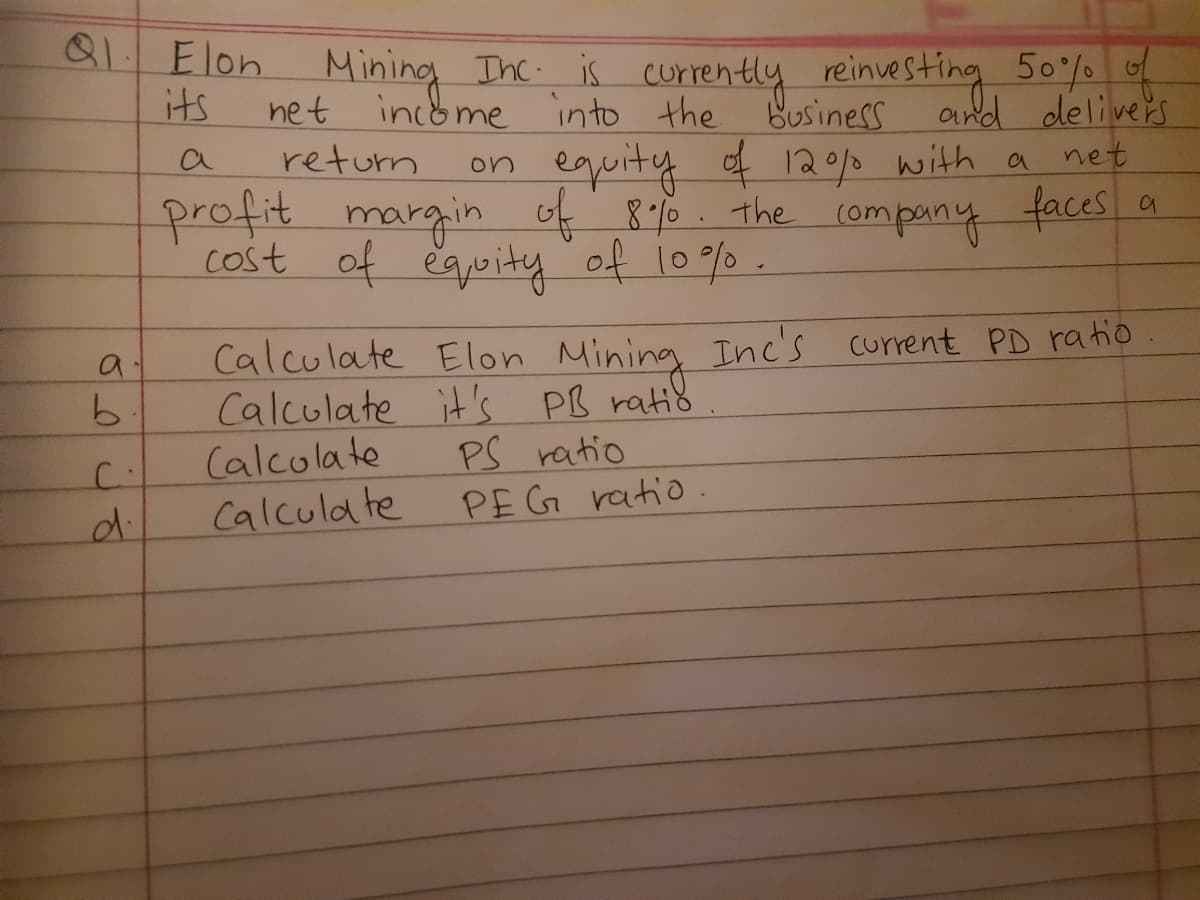 Q1. Elon Mining Inc. is currently reinvesting 50% of
its net income into the business and delivers
a return on equity of 12% with a net
profit margin of 8%. the company faces a
cost of equity of 10%.
a. Calculate Elon Mining Inc's current PD ratio.
b. Calculate it's PB ratio.
c. Calculate PS ratio
d. Calculate PEG ratio.